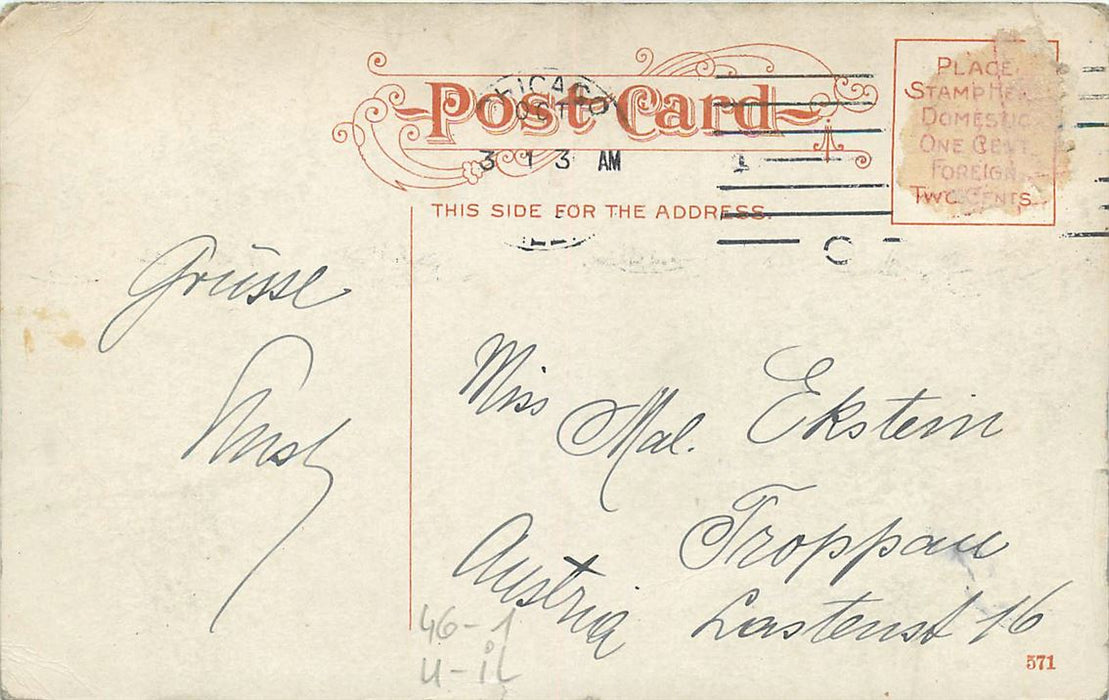 Post Card
CHICAGO
OCT
3 1 3 AM
PLACE
STAMP HERE
DOMESTIC
ONE CENT
FOREIGN
TWO CENTS
THIS SIDE FOR THE ADDRESS.
Grüsse
Miss Mal. Ekstein
Troppau
Austria Lastenst 16
46-1
U-iL
571